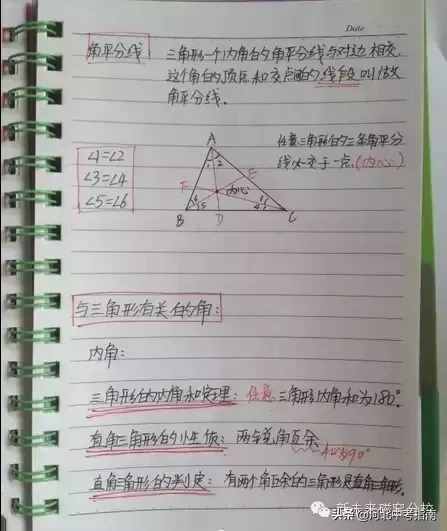 Date
角平分线
三角形一个内角的角平分线与对边相交,
这个角的顶点和交点间的线段叫做
角平分线。
∠1=∠2
∠3=∠4
∠5=∠6
任意三角形的三条角平分
线交于一点.(内心)
A
1 2
F
E
内心
B
D
C
与三角形有关的角:
内角:
三角形的内角和定理: 任意三角形内角和为180°.
直角三角形的性质: 两锐角互余
和为90°
直角三角形的判定: 有两个角互余的三角形是直角三角形.
新未来磁窑分校
头条@河北中考指南